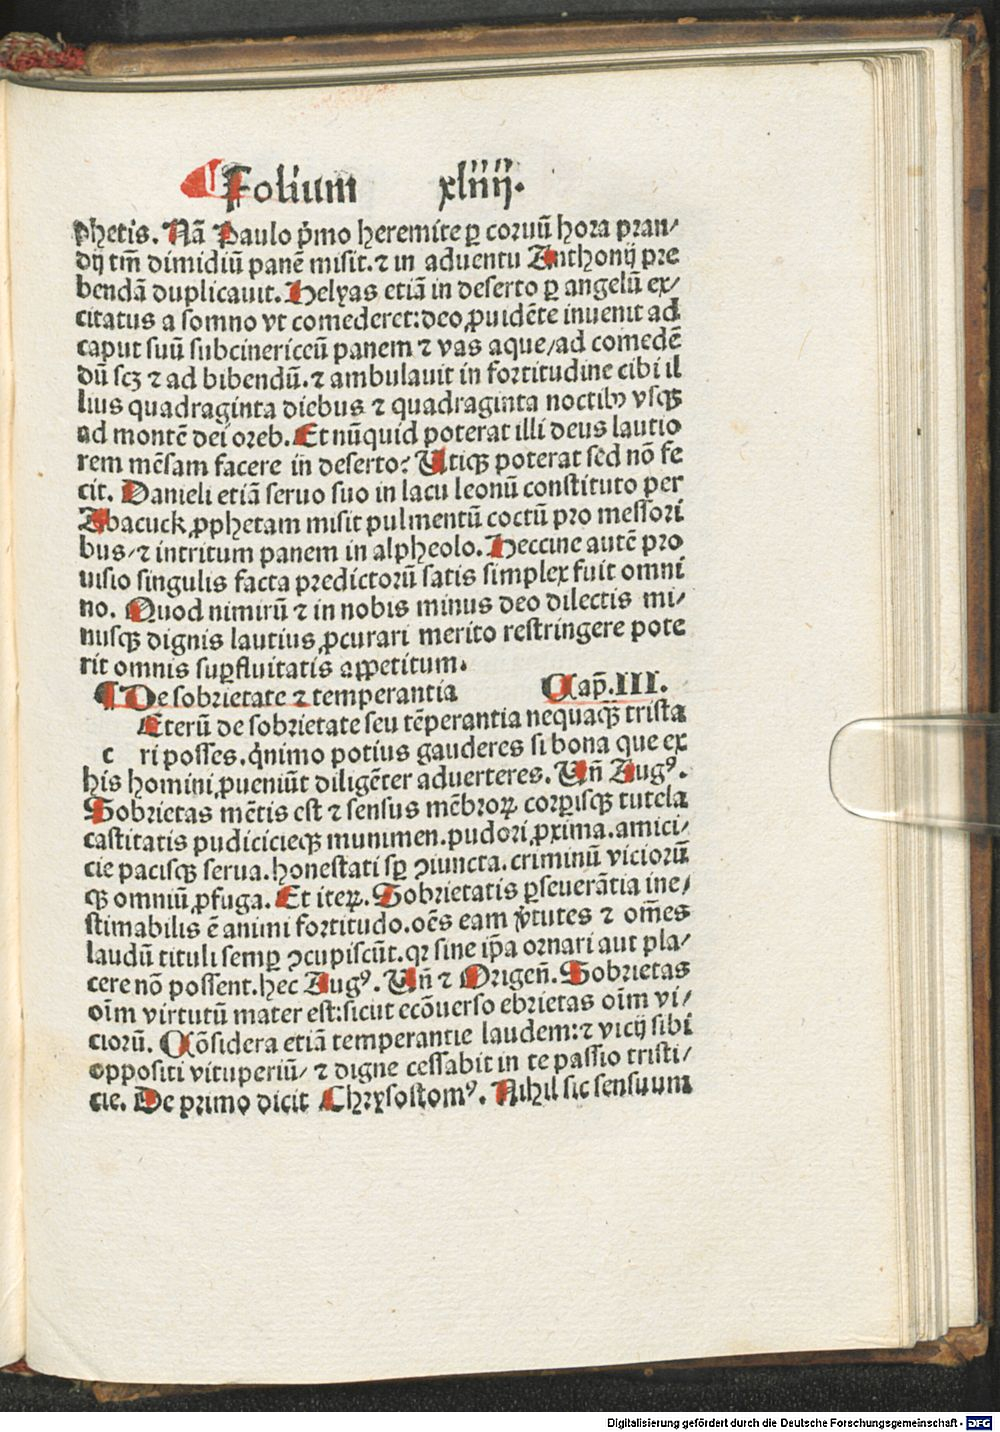 ¶ Folium xliiij.
phetis. Nã Paulo p̃mo heremite ꝑ coruũ hora pran/
dij tm̃ dimidiũ panẽ misit. ⁊ in aduentu Anthonij pre
bendã duplicauit. Helyas etiã in deserto ꝑ angelũ ex/
citatus a somno vt comederet: deo ꝓuidẽte inuenit ad
caput suũ subcinericeũ panem ⁊ vas aque/ad comedẽ
dũ scꝫ ⁊ ad bibendũ. ⁊ ambulauit in fortitudine cibi il
lius quadraginta diebus ⁊ quadraginta noctibꝰ vsqꝫ
ad montẽ dei oreb. Et nũquid poterat illi deus lautio
rem mẽsam facere in deserto? Utiqꝫ poterat sed nõ fe
cit. Danieli etiã seruo suo in lacu leonũ constituto per
Abacuck ꝓphetam misit pulmentũ coctũ pro messori
bus/⁊ intritum panem in alpheolo. Heccine autẽ pro
uisio singulis facta predictorũ satis simplex fuit omni
no. Quod nimirũ ⁊ in nobis minus deo dilectis mi/
nusqꝫ dignis lautius ꝓcurari merito restringere pote
rit omnis suꝑfluitatis appetitum.
¶ De sobrietate ⁊ temperantia Cap̃. III.
Eterũ de sobrietate seu tẽperantia nequaqꝫ trista
c ri posses. q̇nimo potius gauderes si bona que ex
his homini ꝓueniũt diligẽter aduerteres. Uñ Augꝰ.
Sobrietas mẽtis est ⁊ sensus mẽbroꝝ corꝑisqꝫ tutela
castitatis pudicicieqꝫ munimen. pudori ꝓxima. amici/
cie pacisqꝫ serua. honestati sꝑ ꝯiuncta. criminũ viciorũ
qꝫ omniũ ꝓfuga. Et iteꝝ. Sobrietatis ꝑseuerãtia ine/
stimabilis ẽ animi fortitudo. oẽs eam v̓tutes ⁊ om̃es
laudũ tituli semꝑ ꝯcupiscũt. qꝛ sine ip̃a ornari aut pla/
cere nõ possent. hec Augꝰ. Uñ ⁊ Origeñ. Sobrietas
oĩm virtutũ mater est: sicut ecõuerso ebrietas oĩm vi/
ciorũ. Cõsidera etiã temperantie laudem: ⁊ vicij sibi
oppositi vituperiũ/ ⁊ digne cessabit in te passio tristi/
cie. De primo dicit Chrysostomꝰ. Nihil sic sensuum
Digitalisierung gefördert durch die Deutsche Forschungsgemeinschaft - DFG